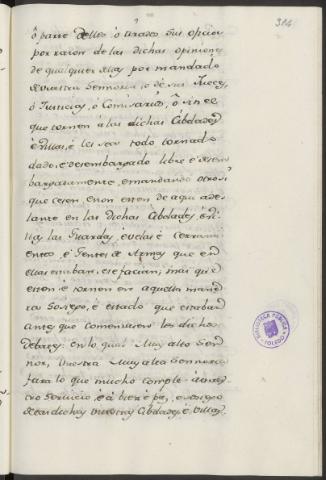 314
ô parte dellos ô tirados sus oficios
por razon de las dichas opiniones
de qualquier dellas por mandado
de vuestra Sennoria, o de sus Jueces,
ó Justicias, ó Comisarios, ô sin el
que tornen á las dichas Cibdades
é Villas, é les sea todo tornado
dado, é desembargado libre é desem
bargadamente, emandando otrosi
que cesen, enon esten de aqui ade-
lante en las dichas Cibdades, é Vi-
llas las Guardas, évelas é cerrami-
entos é Gentes de Armas que en
ellas estaban, é se facian; mas que
esten é tornen en aquella mane-
ra Sosiego, é estado que estaban
antes que comenzasen los dichos
debates. En lo qual Muy alto Sen-
nor, Vuestra Muy alta Sennoria
fara lo que mucho comple á vues-
tro Servicio, é á bien é paz, é sosiego
de las dichas Vuestras Cibdades, é Villas,
BIBLIOTECA PÚBLICA
TOLEDO